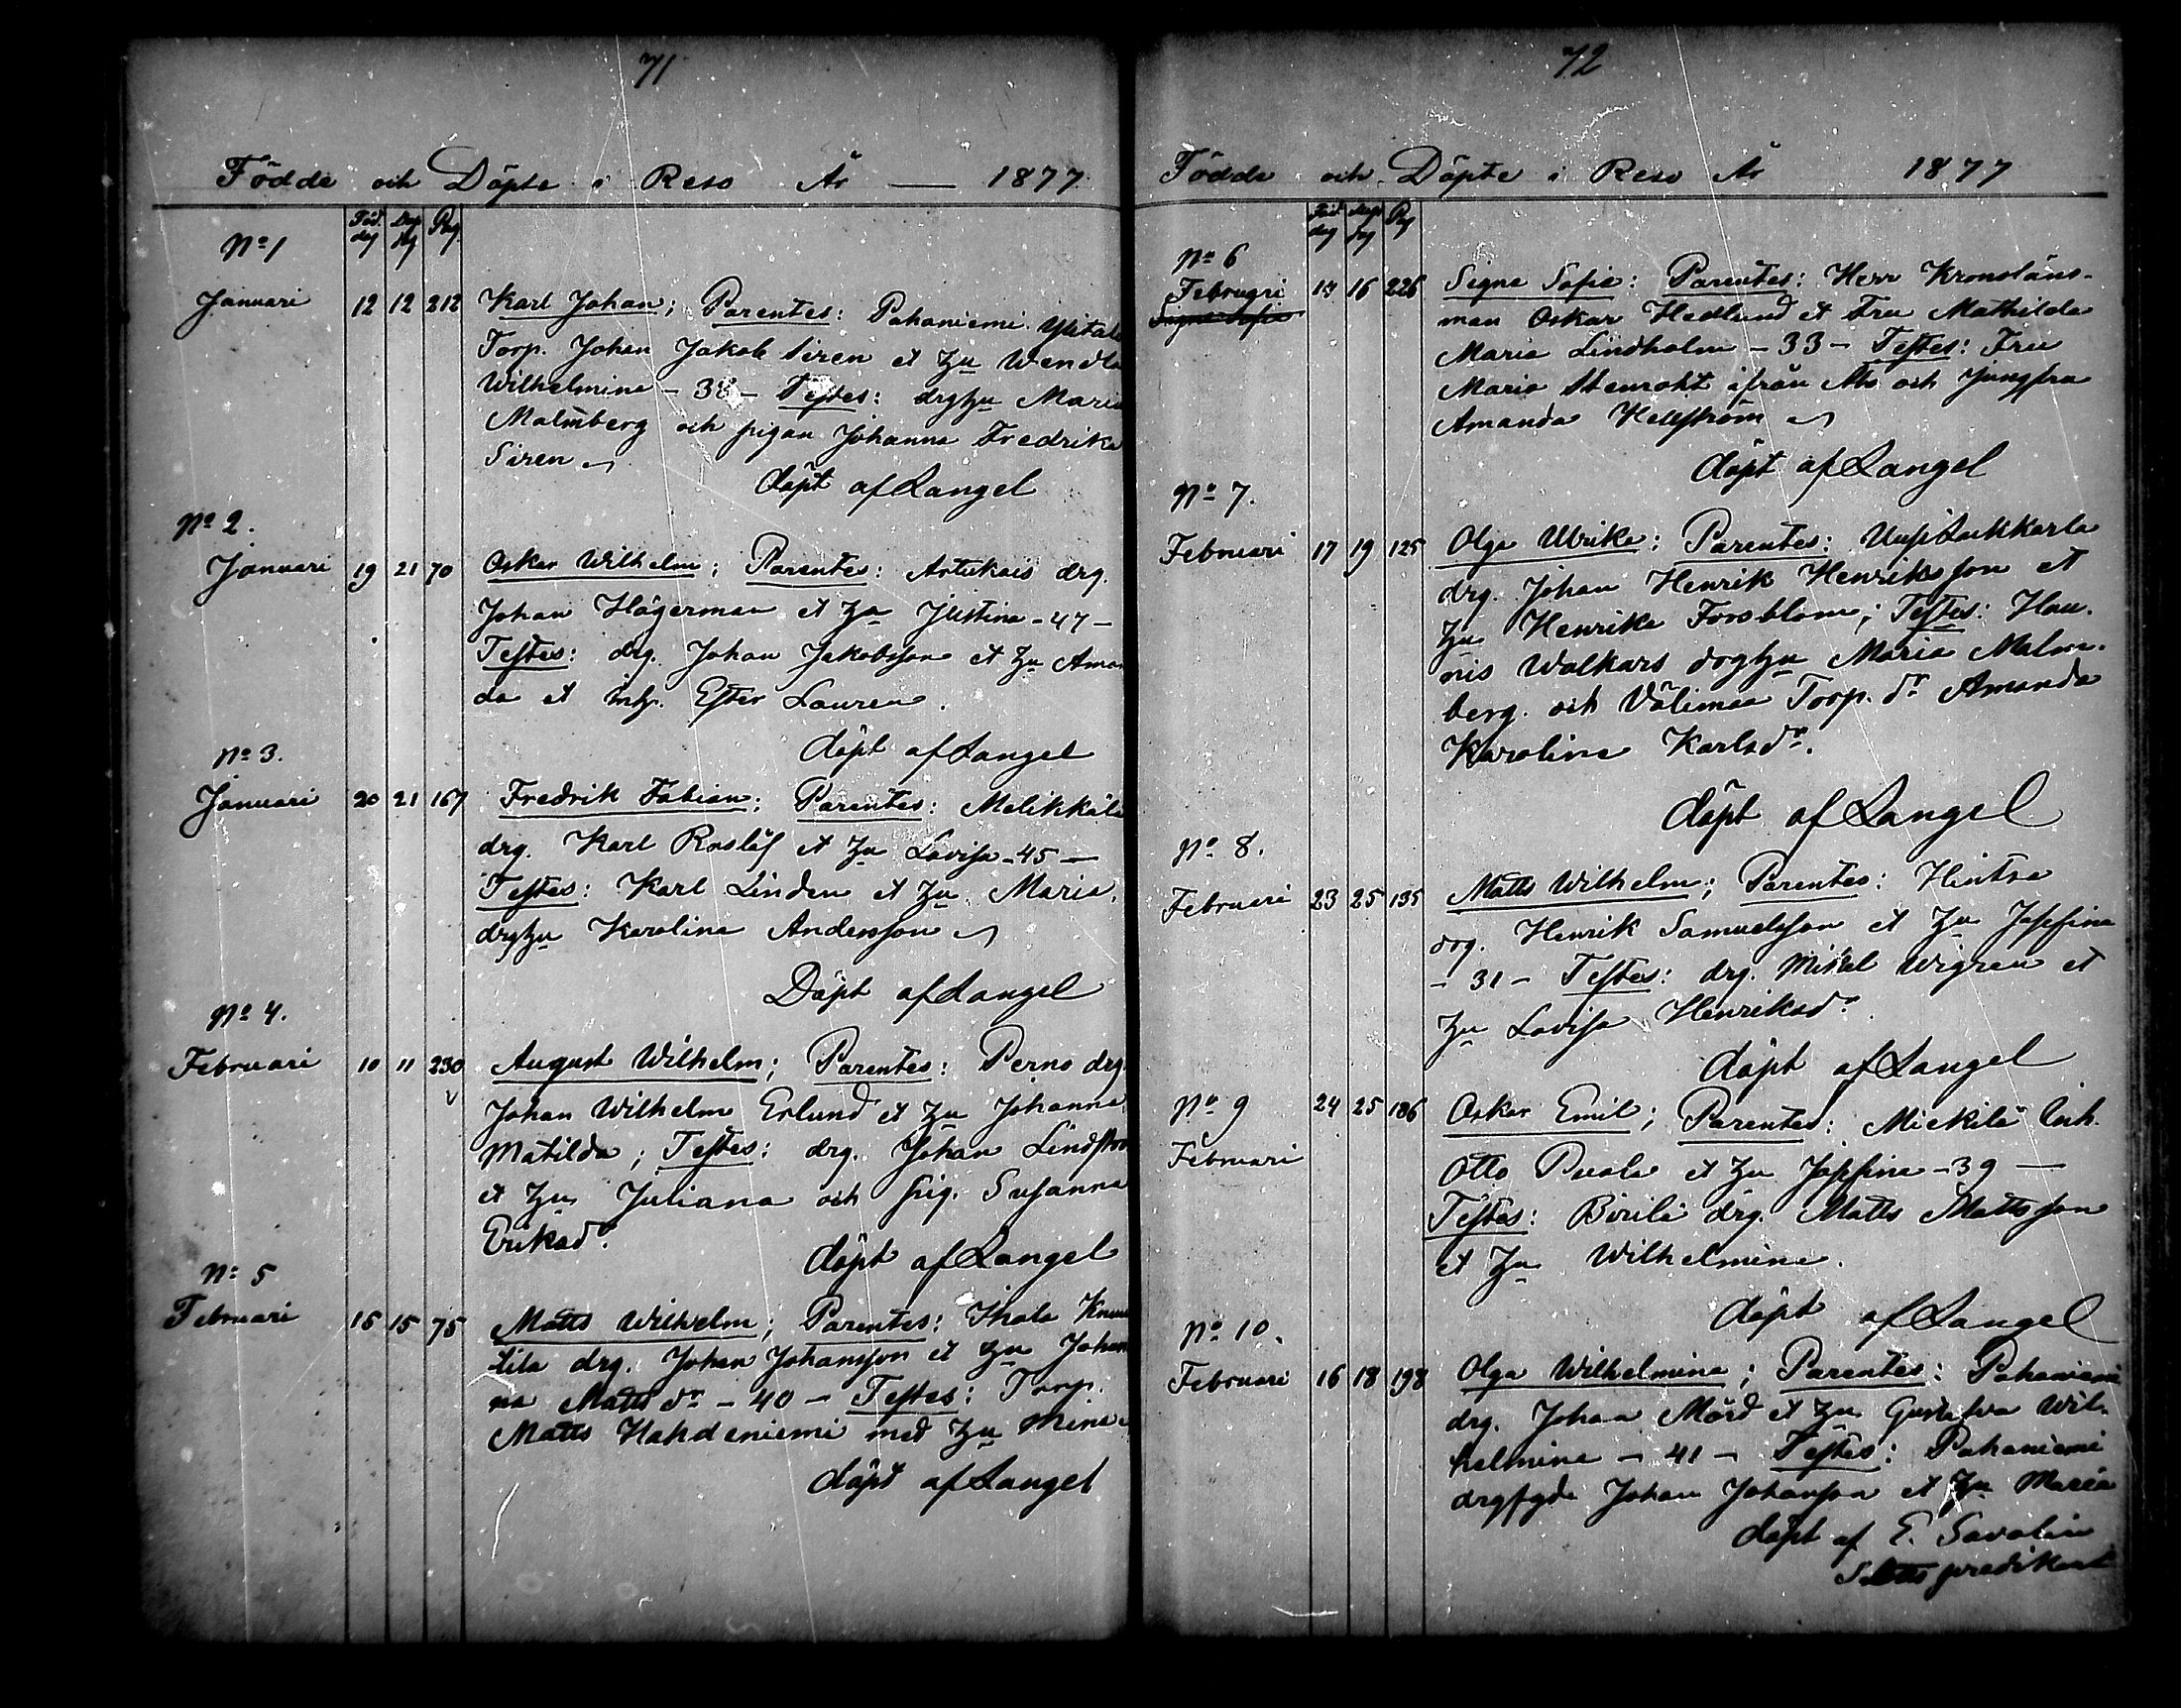 71
Födde och Döpte i Reso År — 1877
Föd. dag Döp dag Pag.
No 1
Januari 12 12 212 Karl Johan; Parentes: Pahaniemi Ylitalo
Torp. Johan Jakob Siren et hu Wendla
Wilhelmina - 38 - Testes: drghu Maria
Malmberg och pigan Johanna Fredrika
Siren
döpt af Langel
No 2.
Januari 19 21 70 Oskar Wilhelm; Parentes: Artukais drg.
Johan Hägerman et hu Justina - 47 -
Testes: drg. Johan Jakobsson et hu Aman
da et Ester Lauren.
döpt af Langel
No 3.
Januari 20 21 167 Fredrik Fabian; Parentes: Malikkala
drg. Karl Roslöf et hu Lovisa - 45 -
Testes: Karl Linden et hu Maria,
drghu Karolina Andersson
Döpt af Langel
No 4.
Februari 10 11 230 August Wilhelm; Parentes: Perno drg.
Johan Wilhelm Erlund et hu Johanna
Matilda; Testes: drg. Johan Lindstro
et hu Juliana och pig. Susanna
Eriksdr.
döpt af Langel
No 5
Februari 15 15 75 Matts Wilhelm; Parentes: Ihala
tila drg. Johan Johansson et hu Johan
na Mattsdr - 40 - Testes: Torp.
Matts Hahdeniemi med hu Mina
döpt af Langel
72
Födde och Döpte i Reso År 1877
Föd dag Döp dag Pag
No 6
Februari 14 16 226 Signe Sofie: Parentes: Herr Kronoläns-
Signe Sofie
man Oskar Hedlund et Fru Mathilda
Maria Lindholm - 33 - Testes: Fru
Maria Stenroht ifrån Åbo och Jungfru
Amanda Hellström
döpt af Langel
No 7.
Februari 17 19 125 Olga Ulrika: Parentes: Uusi Lukkarla
drg. Johan Henrik Henriksson et
hu Henrika Forsblom; Testes: Hau-
nis Walkars drghu Maria Malm-
berg. och Välimaa Torp. dr Amanda
Karolina Karlsdr.
döpt af Langel
No 8.
Februari 23 25 135 Matts Wilhelm; Parentes: Hintsa
drg. Henrik Samuelsson et hu Josefina
- 31 - Testes: drg. Mikel Wigren et
hu Lovisa Henriksdr.
döpt af Langel
No 9 24 25 186 Oskar Emil; Parentes: Mickilä Inh.
Februari
Otto Puola et hu Josefina - 39 -
Testes: Birilä drg. Matts Mattsson
et hu Wilhelmina.
döpt af Langel
No 10.
Februari 16 18 198 Olga Wilhelmina; Parentes: Pahaniemi
drg. Johan Mård et hu Gustafva Wil-
helmina - 41 - Testes: Pahaniemi
drgfgde Johan Johansson et hu Maria
döpt af E. Savolin
Slottspredikant